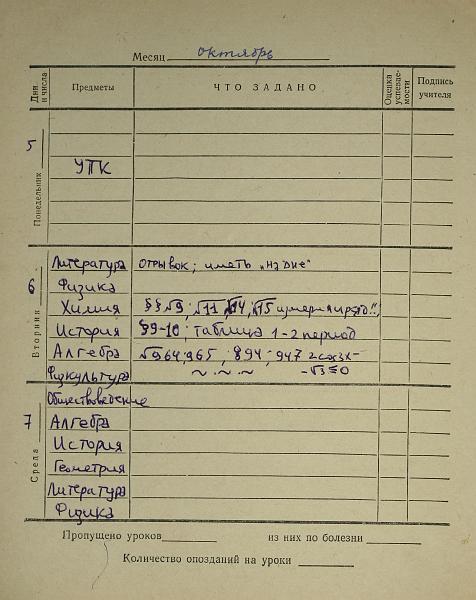 Месяц октябрь
Дни и числа Предметы ЧТО ЗАДАНО Оценка успеваемости Подпись учителя
5 Понедельник
УПК
6 Вторник
Литература отрывок; иметь „На дне"
Физика
Химия §§ √9; √11, √14, √15
История §9-10; таблица 1-2 период
Алгебра √964, 965, 894, 947 2cos3x-
Физкультура ~ . ~ . ~ -√3≤0
7 Среда
Обществоведение
Алгебра
История
Геометрия
Литература
Физика
Пропущено уроков из них по болезни
Количество опозданий на уроки